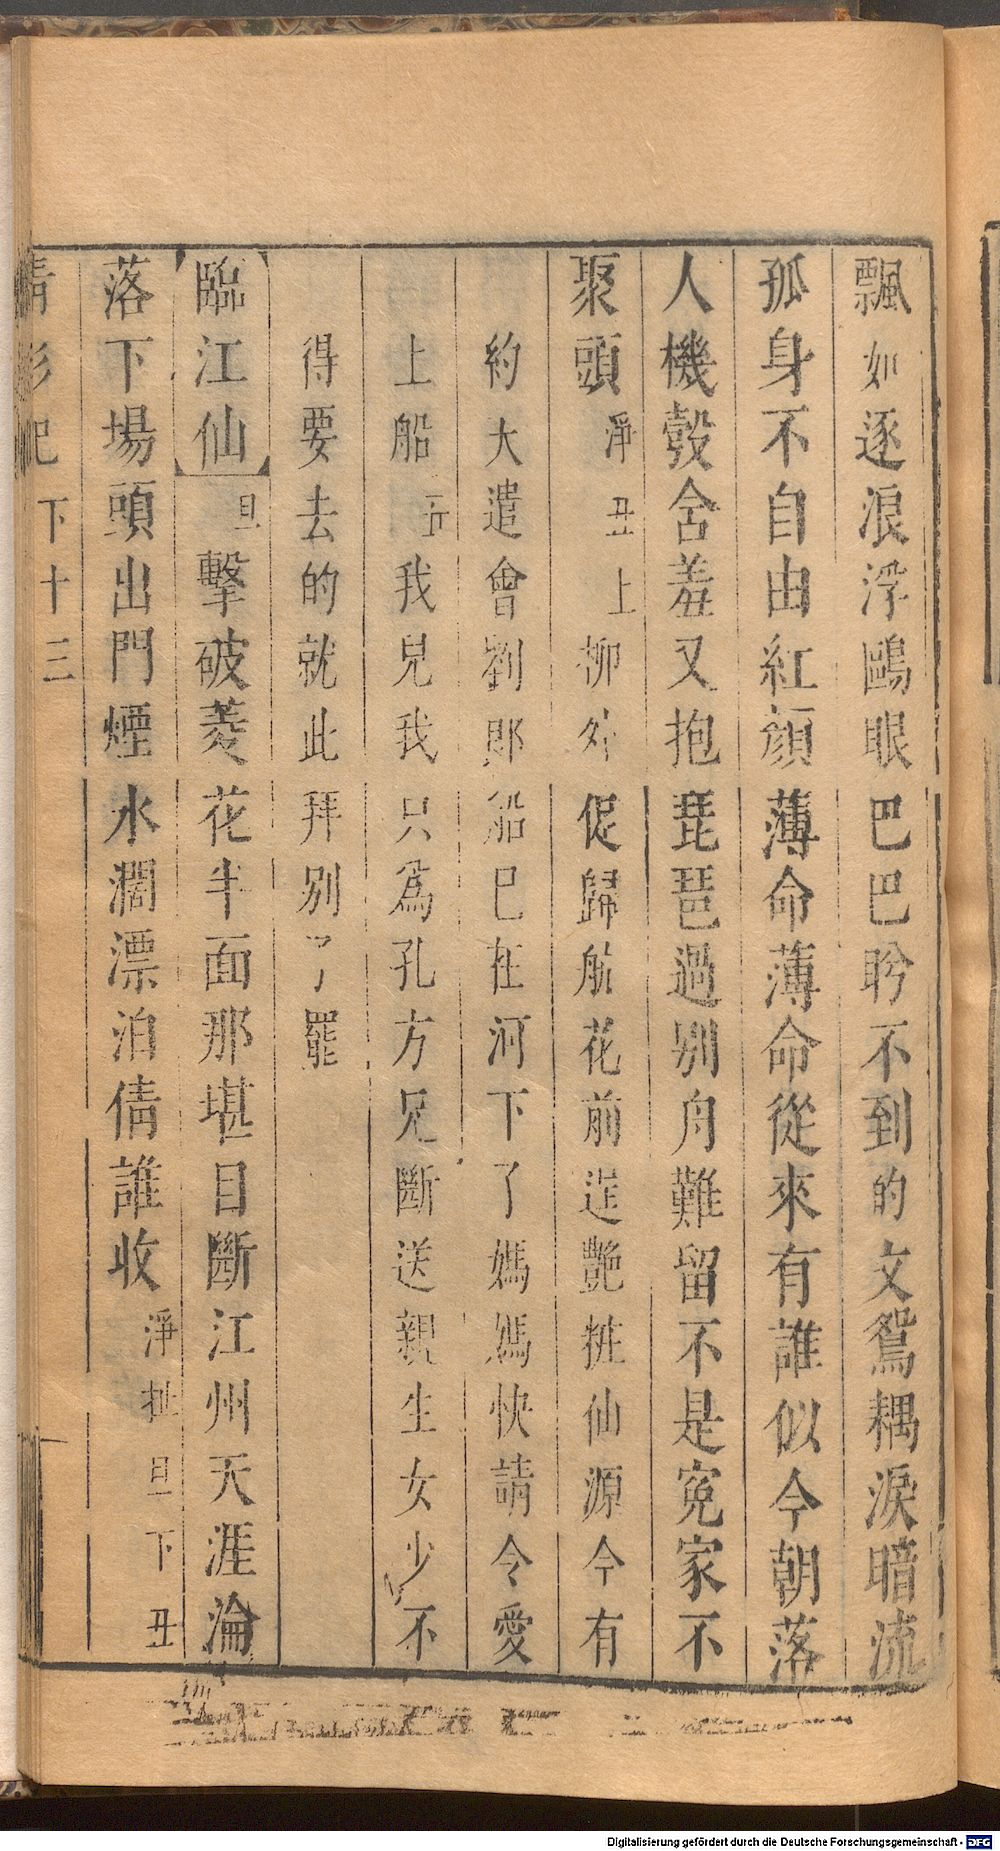 飄如逐浪浮鷗眼巴巴盻不到的文鴛耦淚暗流
孤身不自由紅顏薄命薄命從來有誰似今朝落
人機彀舍羞又抱琵琶過別舟難留不是寃家不
聚頭淨丑上柳外促歸航花前送艷粧仙源今有
約大遣會劉郎船已在河下了媽媽快請令愛
上船丑我兒我只爲孔方兄斷送親生女少不
得要去的就此拜別了罷
臨江仙旦擊破菱花半面那堪目斷江州天涯淪
落下場頭出門煙水濶漂泊倩誰收淨扯旦下丑
下十三
Digitalisierung gefördert durch die Deutsche Forschungsgemeinschaft - DFG